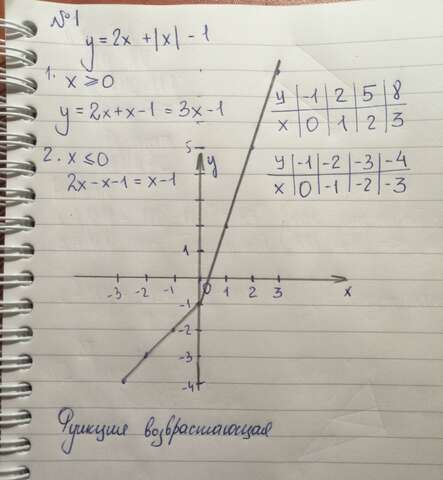 №1
y = 2x + |x| - 1
1. x ≥ 0
y = 2x + x - 1 = 3x - 1
y | -1 | 2 | 5 | 8
x | 0 | 1 | 2 | 3
2. x ≤ 0
2x - x - 1 = x - 1
y | -1 | -2 | -3 | -4
x | 0 | -1 | -2 | -3
5
y
1
-3 -2 -1 0 1 2 3 x
-1
-2
-3
-4
Функция возврастающая